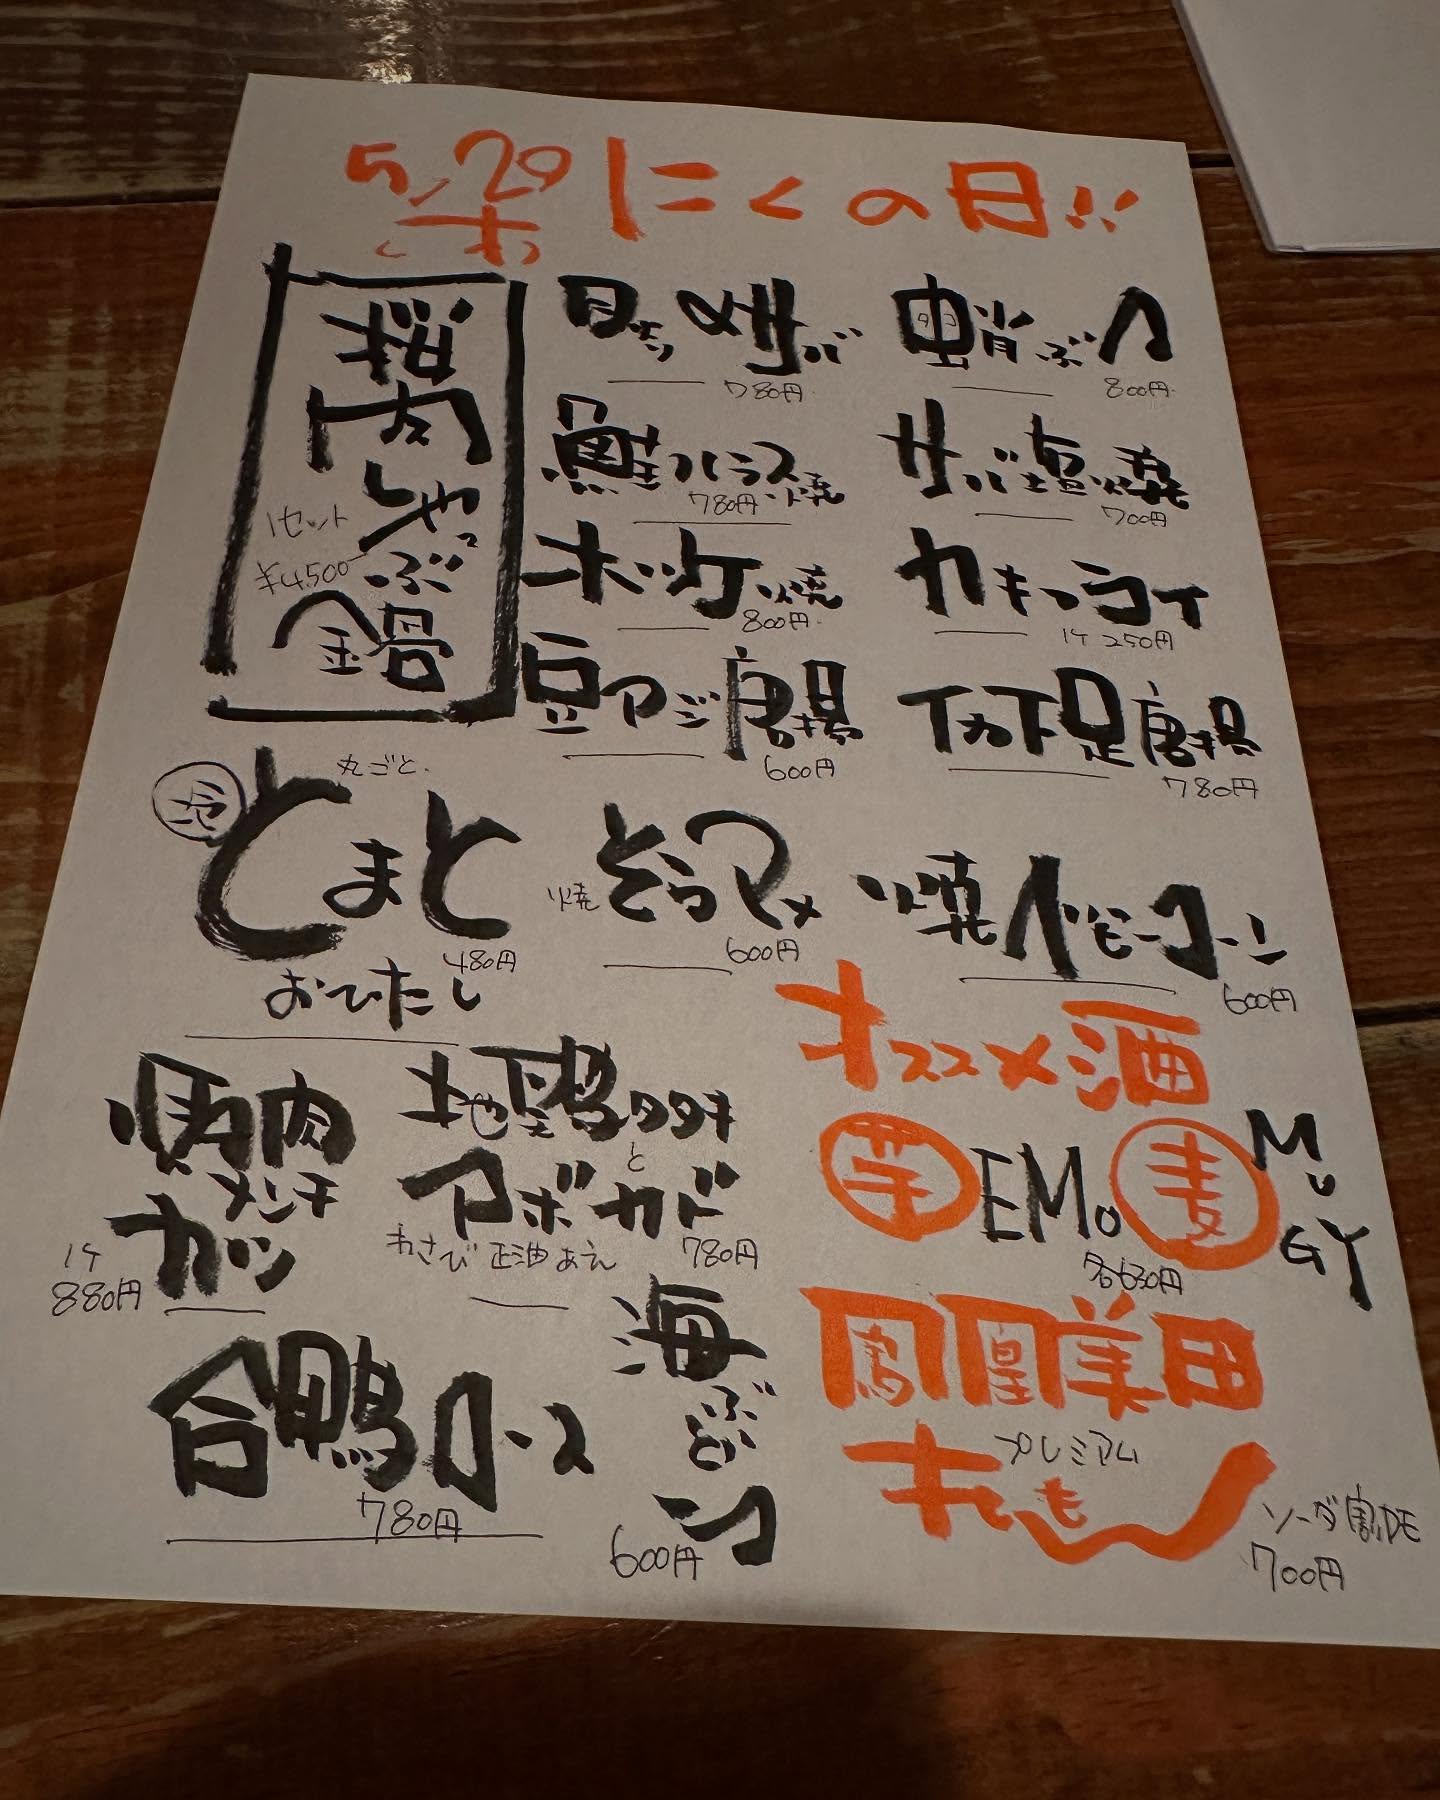 5/20 にくの日!!
桜肉しゃぶ鍋
1セット
¥4,500
〆サバ
780円
蛸ぶつ
800円
鮭ハラス焼
780円
サバ塩焼
700円
ホッケ焼
800円
カキフライ
1ケ 250円
豆アジ唐揚
600円
イカ下足唐揚
780円
冷
丸ごと
とまと
480円
おひたし
焼 そらマメ
600円
焼ベビーコーン
600円
馬肉
メンチ
カツ
1ケ
880円
地鶏タタキ
と
アボカド
わさび正油あえ
780円
オススメ酒
芋 EMO
麦 MUGY
各630円
合鴨ロース
780円
海ぶどう
600円
鳳凰美田
プレミアム
もも
ソーダ割DE
700円